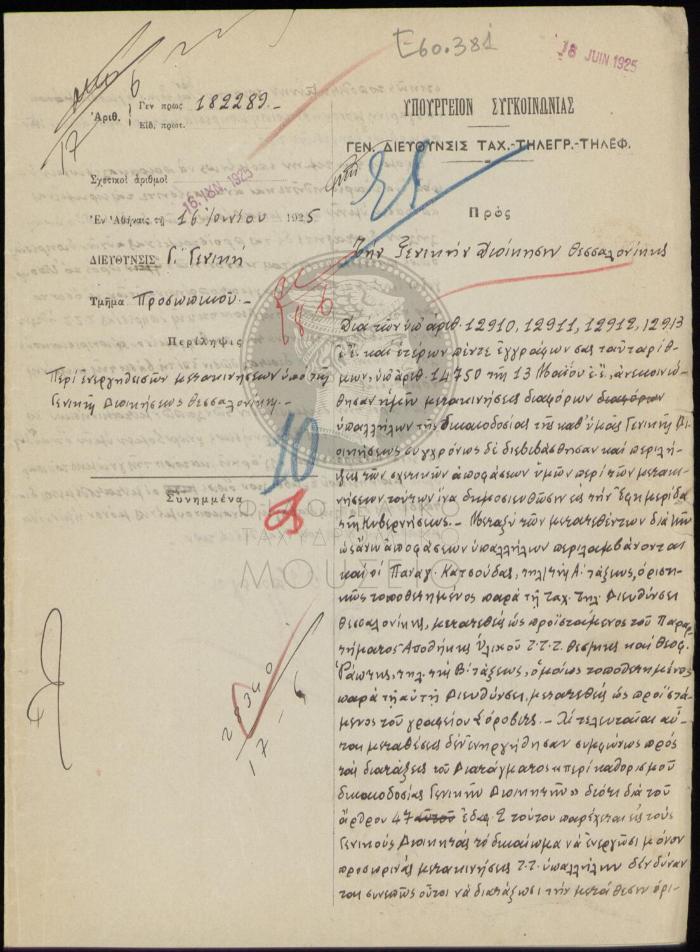 Ε60.381
18 JUN 1925
6
17
Ἀριθ.
Γεν πρωτ 182289.-
Εἰδ. πρωτ.
Σχετικοὶ ἀριθμοὶ
16. ΙΟΥΝ. 1925
Ἐν Ἀθήναις τῇ 16 Ἰουνίου 1925
ΔΙΕΥΘΥΝΣΙΣ Γ. Γενικὴ
Τμῆμα Προσωπικοῦ.-
Περίληψις
Περὶ ἐνεργηθεισῶν μετακινήσεων ὑπὸ τῆς
Γενικῆς Διοικήσεως Θεσσαλονίκης.-
10
Συνημμένα
28340
17-6
ΥΠΟΥΡΓΕΙΟΝ ΣΥΓΚΟΙΝΩΝΙΑΣ
ΓΕΝ. ΔΙΕΥΘΥΝΣΙΣ ΤΑΧ.-ΤΗΛΕΓΡ.-ΤΗΛΕΦ.
Πρὸς
Τὴν Γενικὴν Διοίκησιν Θεσσαλονίκης
Διὰ τῶν ὑπ' ἀριθ. 12910, 12911, 12912, 12913
ἐ.ἔ. καὶ ἑτέρων πέντε ἐγγράφων σας ταὐταρίθ-
μων, ὑπ' ἀριθ. 14750 τῆς 13 Μαΐου ἐ.ἔ, ἀνεκοινώ-
θησαν ἡμῖν μετακινήσεις διαφόρων διαφόρων
ὑπαλλήλων τῆς δικαιοδοσίας τῆς καθ' ὑμᾶς Γενικῆς Δι-
οικήσεως συγχρόνως δὲ διεβιβάσθησαν καὶ περιλή-
ψεις τῶν σχετικῶν ἀποφάσεων ὑμῶν περὶ τῶν μετακι-
νήσεων τούτων ἵνα δημοσιευθῶσιν εἰς τὴν Ἐφημερίδα
τῆς Κυβερνήσεως.- Μεταξὺ τῶν μετατεθέντων διὰ τῶν
ὡς ἄνω ἀποφάσεων ὑπαλλήλων περιλαμβάνονται
καὶ οἱ Παναγ. Κατσούδας, τηλ/τὴς Α' τάξεως, ὁριστι-
κῶς τοποθετημένος παρὰ τῇ ταχ. τηλ. Διευθύνσει
Θεσσαλονίκης, μετατεθεὶς ὡς προϊστάμενος τοῦ Παραρ-
τήματος Ἀποθήκης Ὑλικοῦ Τ.Τ.Τ. Θεσ/κης καὶ Θεοφ.
Ῥάπτης, τηλ. τὴς Β' τάξεως, ὁμοίως τοποθετημένος
παρὰ τῇ αὐτῇ Διευθύνσει, μετατεθεὶς ὡς προϊστά-
μενος τοῦ γραφείου Σόροβιτς.- Αἱ τελευταῖαι αὗ-
ται μεταθέσεις δὲν ἐνηργήθησαν συμφώνως πρὸς
τὰς διατάξεις τοῦ Διατάγματος "περὶ καθορισμοῦ
δικαιοδοσίας Γενικῶν Διοικητῶν" διότι διὰ τοῦ
ἄρθρου 47 αὐτοῦ ἐδαφ. 2 τούτου παρέχεται εἰς τοὺς
Γενικοὺς Διοικητὰς τὸ δικαίωμα νὰ ἐνεργῶσι μόνον
προσωρινὰς μετακινήσεις Τ.Τ. ὑπαλλήλων δὲν δύναν-
ται συνεπῶς οὗτοι νὰ διατάξωσι τὴν μετάθεσιν ὁρι-
ΤΑΧΥΔΡΟΜΙΚΟ
ΜΟΥΣΕΙΟ